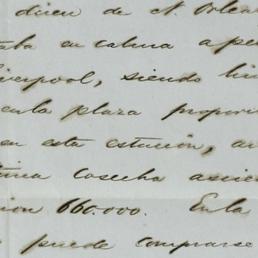 dicen de N. Orlea
taba en calma ape
iverpool, siendo
en la plaza propor
en esta estacion, a
tima cosecha ascie
cion 660.000. En la
puede comprarse